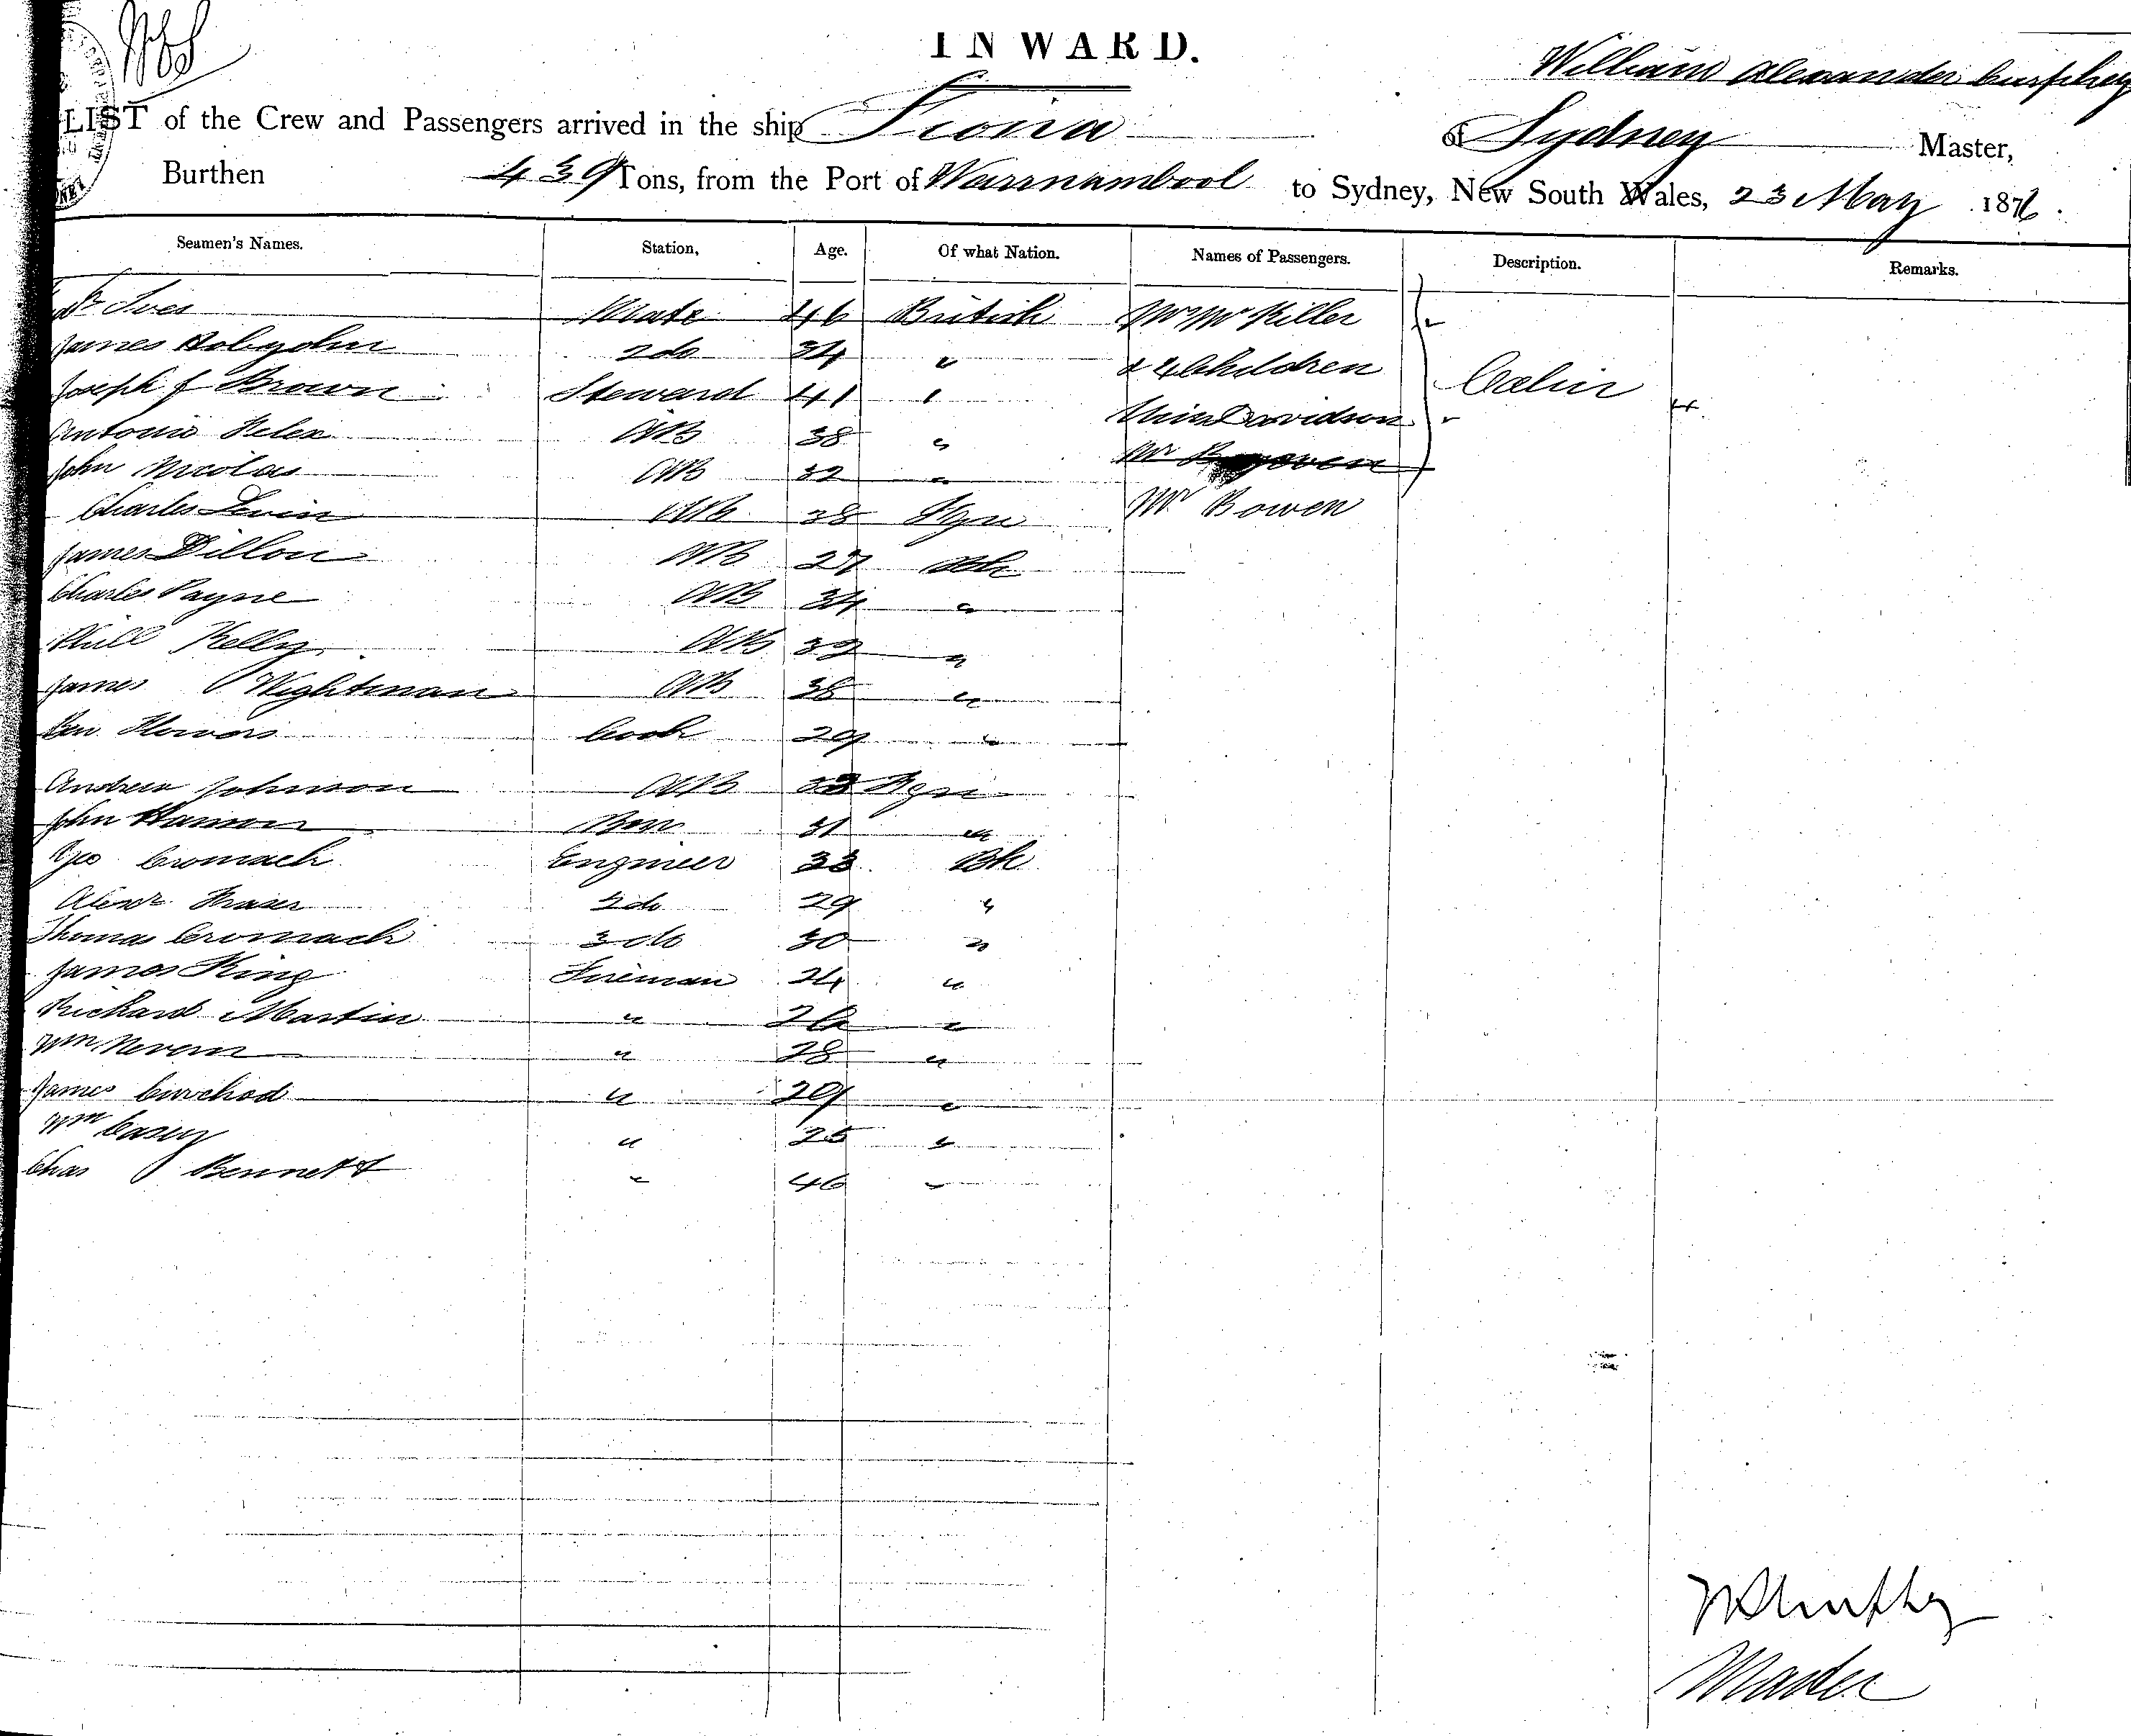 INWARD.
William Alexander Curphey
LIST of the Crew and Passengers arrived in the ship Fiona of Sydney Master,
Burthen 439 Tons, from the Port of Warrnambool to Sydney, New South Wales, 23 May 1876.
Seamen's Names. Station, Age. Of what Nation. Names of Passengers. Description. Remarks.
Ives Mate 46 British Mr Mrs Killer
James 2 do 34 " & 4 Children
Joseph J Brown Steward 41 " Davidson Cabin
Antonio AB 38 "
John Nicolas AB 32 "
Charles Levin AB 38 Fgn Mr Bowen
James Dillon AB 27 Bh
Charles Payne AB 34 "
Kelly AB 32 "
James Wightman AB 38 "
Cook 29 "
Andrew Johnson AB 33 Fgn
John 31 "
Geo Cromach Engineer 33 Bh
Alexr Fraser 2 do 29 "
Thomas Cromach 3 do 30 "
James King Fireman 24 "
Richard Martin " 26 "
Wm " 28 "
James " 29 "
Wm Casey " 25 "
Chas Bennett " 46 "
Master